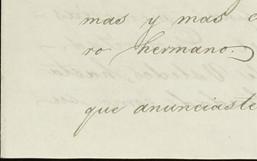 mas y mas c
ro hermano.
que anunciaste